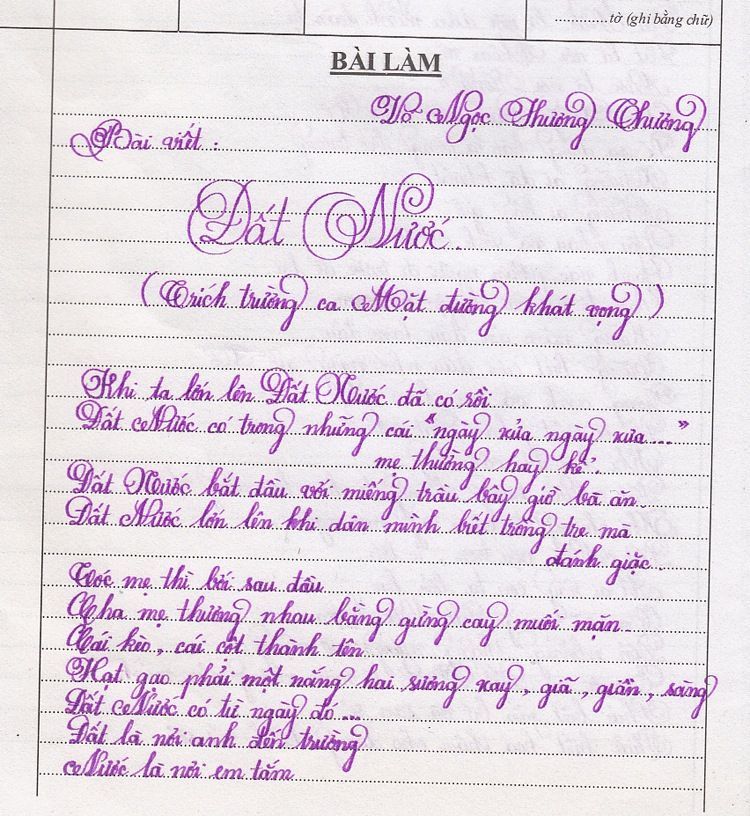 ..............tờ (ghi bằng chữ)
BÀI LÀM
Võ Ngọc Thương Chương
Bài viết :
Đất Nước.
(Trích trường ca Mặt đường khát vọng)
Khi ta lớn lên Đất Nước đã có rồi
Đất Nước có trong những cái "ngày xửa ngày xưa..."
mẹ thường hay kể.
Đất Nước bắt đầu với miếng trầu bây giờ bà ăn
Đất Nước lớn lên khi dân mình biết trồng tre mà
đánh giặc.
Tóc mẹ thì bới sau đầu
Cha mẹ thương nhau bằng gừng cay muối mặn
Cái kèo, cái cột thành tên
Hạt gạo phải một nắng hai sương xay, giã, giần, sàng
Đất Nước có từ ngày đó...
Đất là nơi anh đến trường
Nước là nơi em tắm